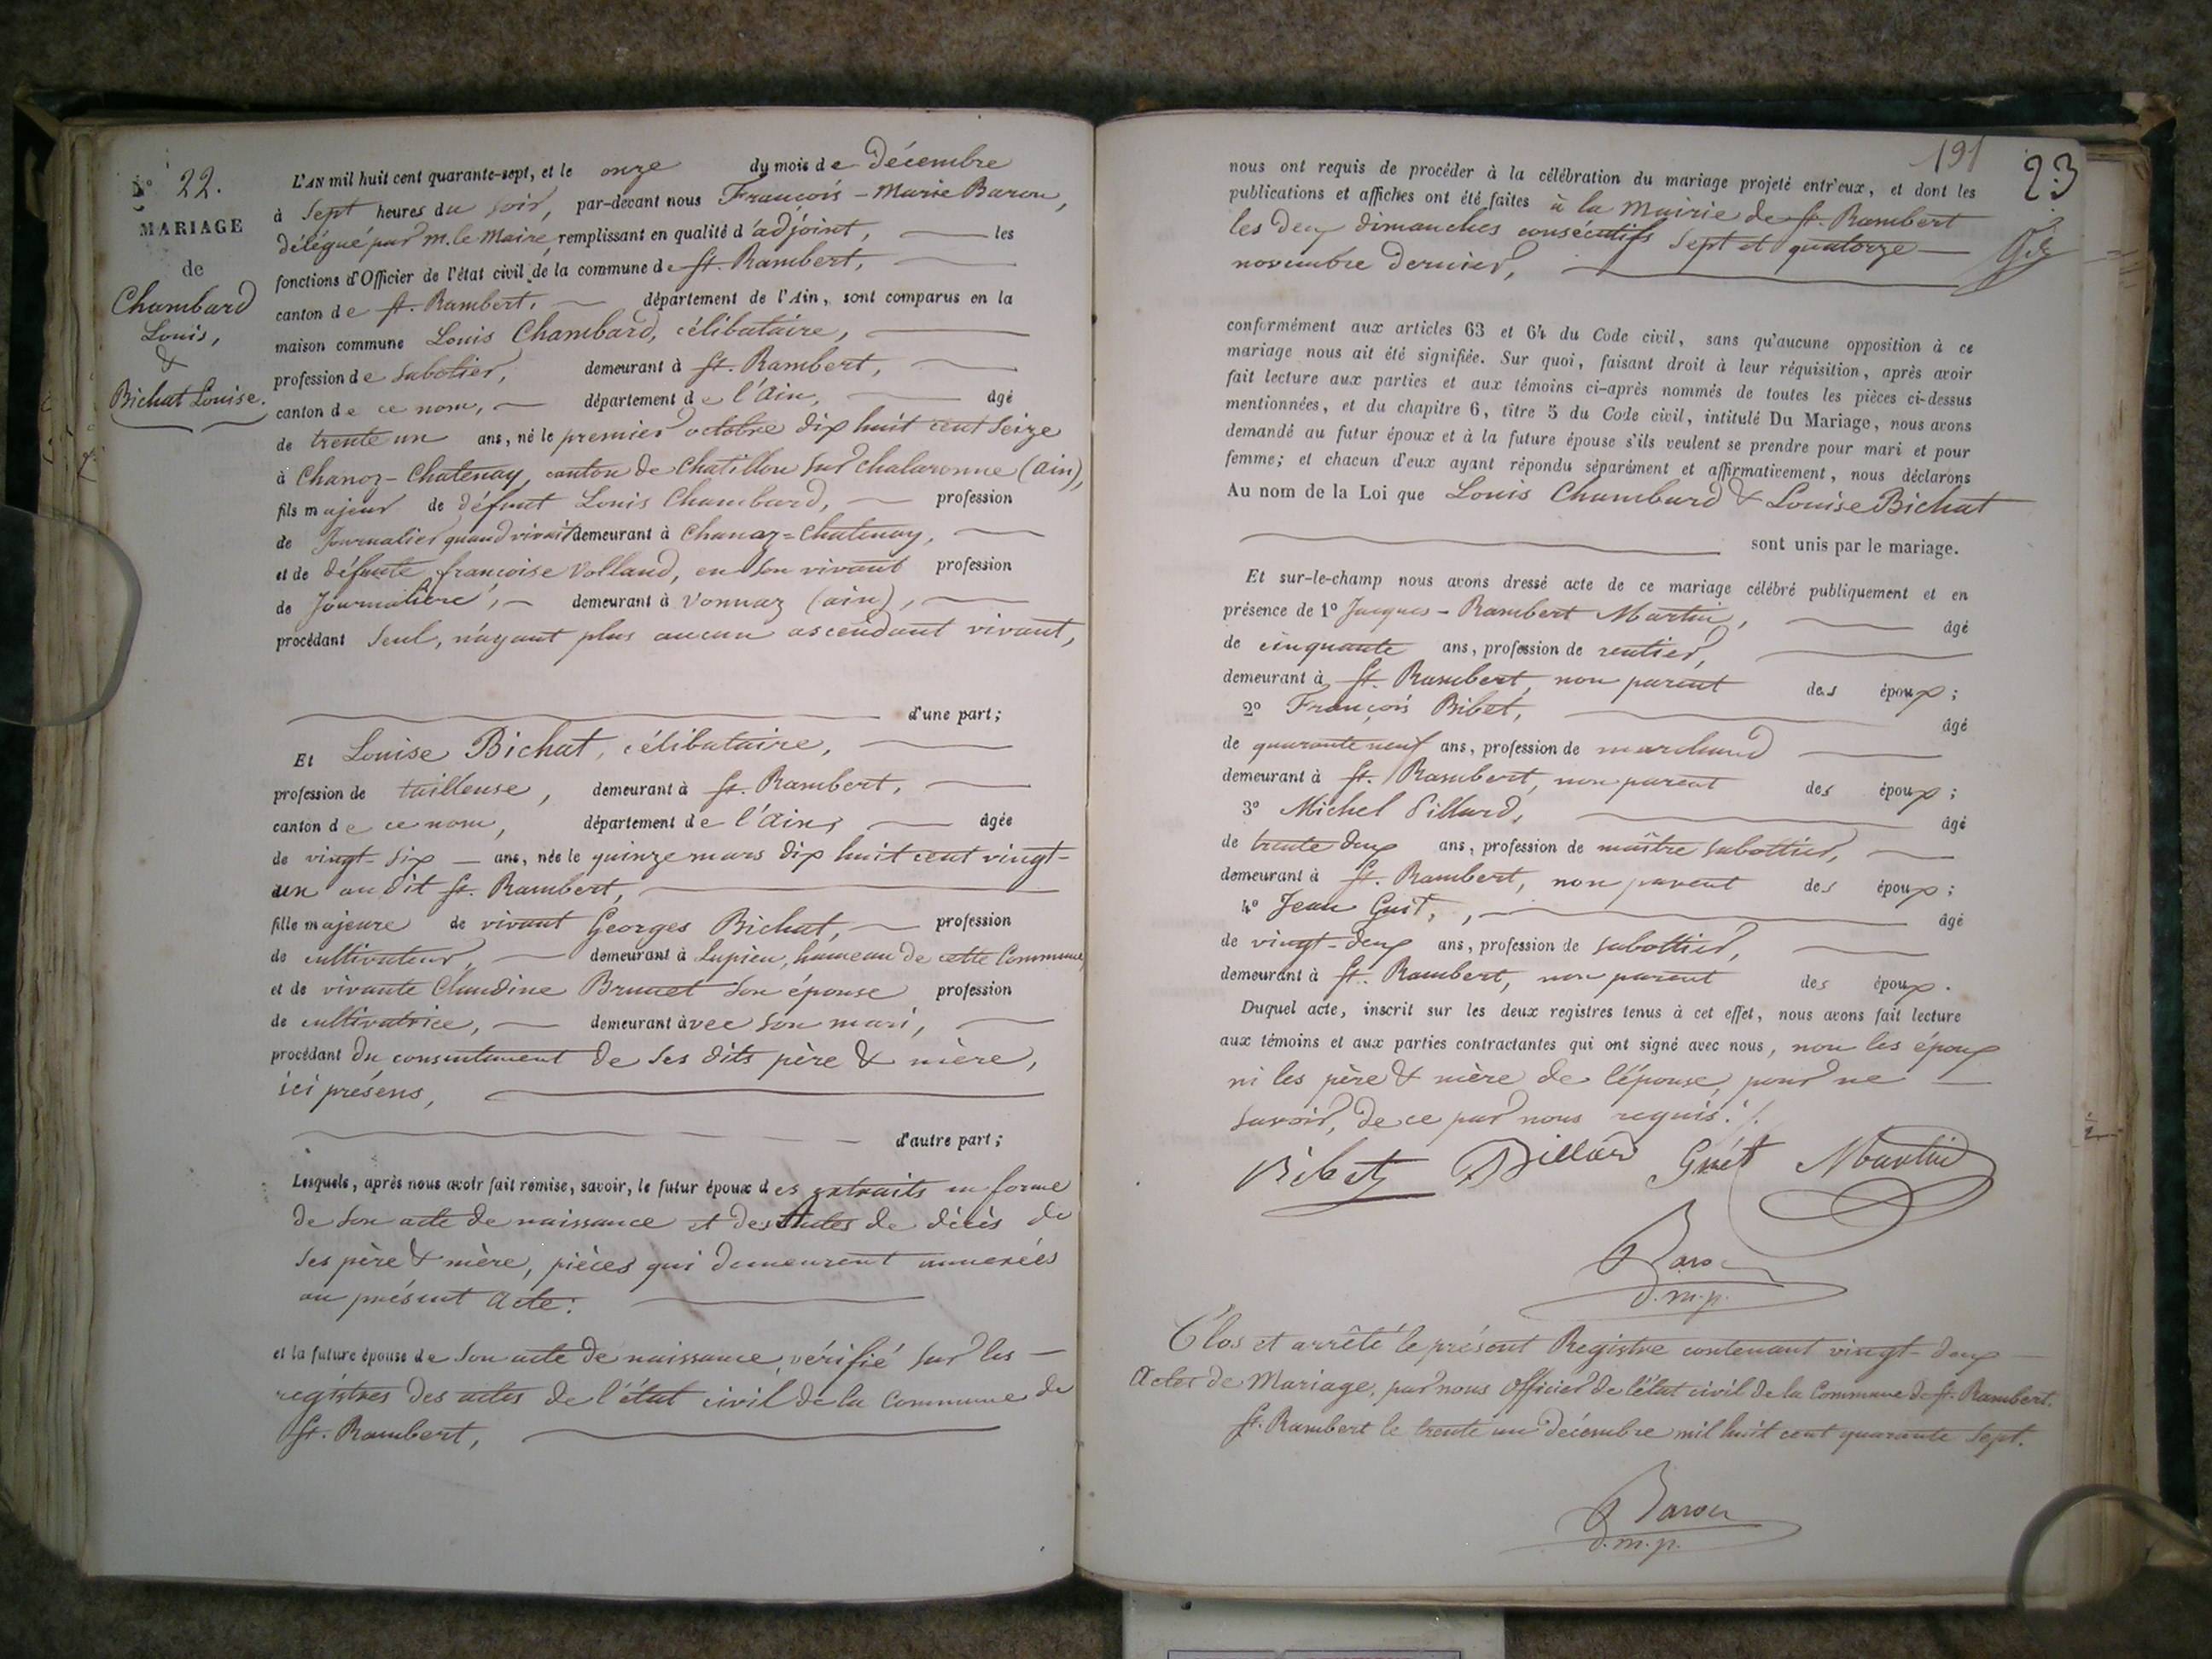 N° 22.
MARIAGE
de
Chambard
Louis,
&
Bichat Louise.
L'AN mil huit cent quarante-sept, et le onze du mois de Décembre
à Sept heures du soir, par-devant nous François-Marie Baron,
délégué par m. le Maire, remplissant en qualité d'adjoint, les
fonctions d'Officier de l'état civil de la commune de St. Rambert,
canton de St. Rambert, département de l'Ain, sont comparus en la
maison commune Louis Chambard, célibataire,
profession de Sabotier, demeurant à St. Rambert,
canton de ce nom, département de l'Ain, âgé
de trente un ans, né le premier octobre dix huit cent Seize
à Chanoz-Chatenay, canton de Chatillon sur chalaronne (Ain),
fils majeur de défunt Louis Chambard, profession
de Journalier quand vivait demeurant à Chanoz=Chatenay,
et de défunte françoise Volland, en son vivant profession
de Journalière, demeurant à Vonnaz (ain),
procédant Seul, n'ayant plus aucun ascendant vivant,
d'une part;
Et Louise Bichat, célibataire,
profession de tailleuse, demeurant à St. Rambert,
canton de ce nom, département de l'Ain, âgée
de vingt-six ans, née le quinze mars dix huit cent vingt-
un au dit St. Rambert,
fille majeure de vivant Georges Bichat, profession
de cultivateur, demeurant à Lupieu, hameau de cette Commune,
et de vivante Claudine Brunet Son épouse profession
de cultivatrice, demeurant avec Son mari,
procédant du consentement de Ses dits père & mère,
ici présens,
d'autre part;
Lesquels, après nous avoir fait remise, savoir, le futur époux des extraits en forme
de Son acte de naissance et des Actes de décès de
Ses père & mère, pièces qui demeurent annexées
au présent Acte:
et la future épouse de Son acte de naissance, vérifié Sur les
registres des actes de l'état civil de la Commune de
St. Rambert,
191
23
nous ont requis de procéder à la célébration du mariage projeté entr'eux, et dont les
publications et affiches ont été faites à la Mairie de St. Rambert
les deux dimanches consécutifs Sept et quatorze
novembre dernier,
conformément aux articles 63 et 64 du Code civil, sans qu'aucune opposition à ce
mariage nous ait été signifiée. Sur quoi, faisant droit à leur réquisition, après avoir
fait lecture aux parties et aux témoins ci-après nommés de toutes les pièces ci-dessus
mentionnées, et du chapitre 6, titre 5 du Code civil, intitulé Du Mariage, nous avons
demandé au futur époux et à la future épouse s'ils veulent se prendre pour mari et pour
femme; et chacun d'eux ayant répondu séparément et affirmativement, nous déclarons
Au nom de la Loi que Louis Chambard & Louise Bichat
sont unis par le mariage.
Et sur-le-champ nous avons dressé acte de ce mariage célébré publiquement et en
présence de 1° Jacques-Rambert Martin, âgé
de cinquante ans, profession de rentier,
demeurant à St. Rambert, non parent des époux;
2° François Bibet, âgé
de quarante neuf ans, profession de marchand
demeurant à St. Rambert, non parent des époux;
3° Michel Dillard, âgé
de trente deux ans, profession de maître Sabottier,
demeurant à St. Rambert, non parent des époux;
4° Jean Guét, âgé
de vingt-deux ans, profession de Sabottier,
demeurant à St. Rambert, non parent des époux.
Duquel acte, inscrit sur les deux registres tenus à cet effet, nous avons fait lecture
aux témoins et aux parties contractantes qui ont signé avec nous, non les époux
ni les père & mère de l'épouse, pour ne
Savoir, de ce par nous requis.
Bibet Dillard Guét Martin
Baron
d.m.p.
Clos et arrêté le présent Registre contenant vingt-deux
Actes de Mariage, par nous Officier de l'état civil de la Commune de St. Rambert.
St. Rambert le trente un décembre mil huit cent quarante Sept.
Baron
d.m.p.